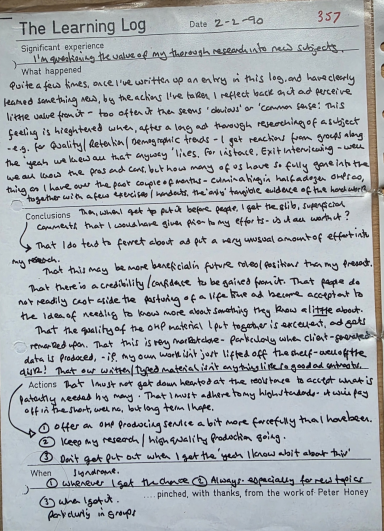 The Learning Log Date 2-2-90 357
Significant experience
I'm questioning the value of my thorough research into new subjects.
What happened
Quite a few times, once I've written up an entry in this log, and have clearly
learned something new, by the actions I've taken I reflect back on it and perceive
little value from it - too often it then seems 'obvious' or 'common sense'. This
feeling is heightened when, after a long and thorough researching of a subject
- e.g. for Quality/Retention/Demographic trends - I get reactions from groups along
the 'yeah we knew all that anyway' lines. For instance, Exit Interviewing - well
we all know the pros and cons, but how many of us have so fully gone into the
thing as I have over the past couple of months - culminating in half a dozen OHPs or so,
together with a few exercises/handouts, the only tangible evidence of the hard work.
Conclusions Then, when I get to put it before people, I get the glib, superficial
comments that I would have given prior to my efforts - is it all worth it?
That I do tend to ferret about and put a very unusual amount of effort into
my research.
That this may be more beneficial in future roles/positions than my present.
That there is a credibility/confidence to be gained from it. That people do
not readily cast aside the posturing of a life time and become acceptant to
the idea of needing to know more about something they know a little about.
That the quality of the OHP material I put together is excellent, and gets
remarked upon. That this is very marketable - particularly when client-generated
data is produced, - if my own work isn't just lifted off the shelf - well off the
disk! That our written/typed material isn't anything like so good and
Actions That I must not get down hearted at the resistance to accept what is
patently needed by many. That I must adhere to my high standards. It will pay
off in the short, well no, but long term I hope.
① Offer an OHP Producing service a bit more forcefully than I have been.
② Keep my research/high quality production going.
③ Don't get put out when I get the 'yeah I know a bit about this'
When syndrome.
① Whenever I get the chance ② Always - especially for new topics
③ When I get it.
Particularly in groups
.... pinched, with thanks, from the work of Peter Honey